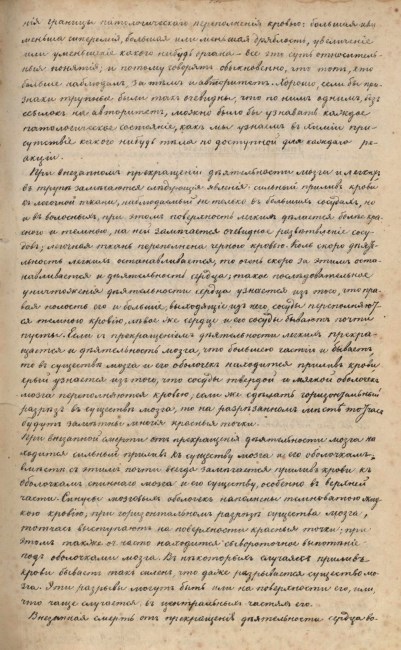 нія границы патологическаго переполненія кровью: большая или
меньшая гиперемія, большая или меньшая дряблость, увеличеніе
или уменьшеніе какого нибудь органа – все это суть относитель-
ныя понятія; и потому говорятъ обыкновенно, что тотъ, кто
больше наблюдалъ, за тѣмъ и авторитетъ. Хорошо, если бы при-
знаки трупные были такъ очевидны, что по нимъ однимъ, безъ
ссылокъ на авторитетъ, можно было бы узнавать каждое
патологическое состояніе, какъ мы узнаемъ въ химіи при-
сутствіе какого нибудь тѣла по доступной для каждаго ре-
акціи.
При внезапномъ прекращеніи дѣятельности мозга и легкихъ
въ трупѣ замѣчаются слѣдующія явленія: сильный приливъ крови
къ легочной ткани, наблюдаемый не только въ большихъ сосудахъ, но
и въ волосныхъ, при этомъ поверхность легкихъ дѣлается болѣе крас-
ною и темною, на ней замѣчается очевидное развѣтвленіе сосу-
довъ; легочная ткань переполнена черною кровью. Коль скоро дѣя-
тельность легкихъ останавливается, то очень скоро за этимъ оста-
навливается и дѣятельность сердца; такое послѣдовательное
уничтоженіе дѣятельности сердца узнается изъ того, что пра-
вая полость его и большіе, выходящіе изъ него, сосуды переполняют-
ся темною кровію, лѣвое же сердце и его сосуды бываютъ почти
пусты. Если съ прекращеніемъ дѣятельности легкихъ прекра-
щается и дѣятельность мозга, что большею частію и бываетъ
то въ существѣ мозга и его оболочкахъ находится приливъ крови
который узнается изъ того, что сосуды твердой и мягкой оболочекъ
мозга переполняются кровью, если же сдѣлать горизонтальный
разрѣзъ въ существѣ мозга, то на разрѣзанномъ мѣстѣ тотчасъ
будутъ замѣтны многія красныя точки.
При внезапной смерти отъ прекращенія дѣятельности мозга на-
ходится сильный приливъ къ существу мозга и его оболочкамъ,
вмѣстѣ съ этимъ почти всегда замѣчается приливъ крови къ
оболочкамъ спиннаго мозга и его существу, особенно въ верхней
части. Синусы мозговыхъ оболочекъ наполнены темноватою жид-
кою кровію, при горизонтальномъ разрѣзѣ существа мозга,
тотчасъ выступаютъ на поверхности красныя точки; при
этомъ также часто находится сывороточное выпотѣніе
подъ оболочками мозга. Въ нѣкоторыхъ случаяхъ приливъ
крови бываетъ такъ силенъ, что даже разрывается существо моз-
га. Эти разрывы могутъ быть или на поверхности его, или,
что чаще случается, въ центральныхъ частяхъ его.
Внезапная смерть отъ прекращенія дѣятельности сердца бы-